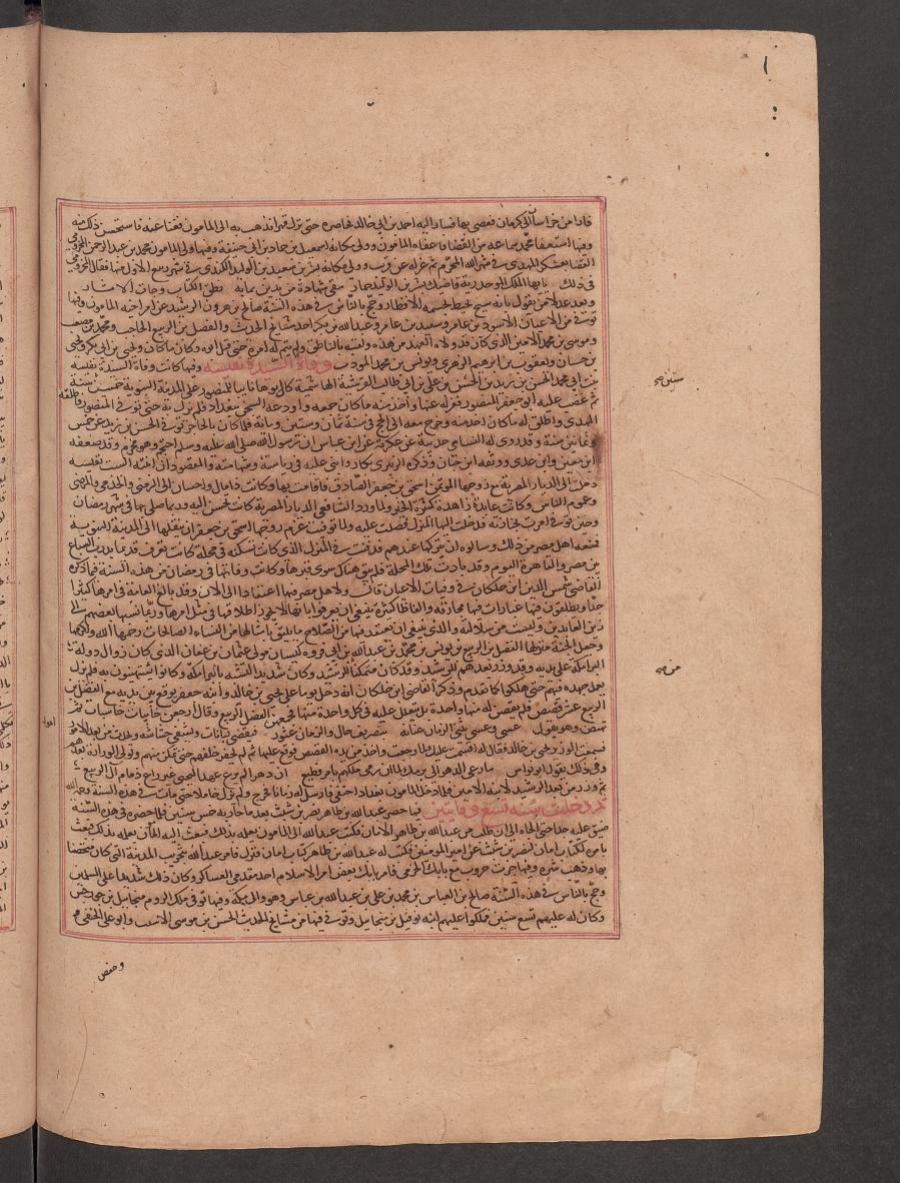 فارا من خراسان الى كرمان فعصى بها فسار اليه احمد بن ابي خالد فحاصره حتى نزل قهرا فذهب به الى المامون فعفا عنه فاستحسن ذلك منه
وفيها استعفا محمد بن سماعة من القضا فاعفاه المامون وولى مكانه اسمعيل بن حماد بن ابي حنيفة وفيها ولى المامون محمد بن عبد الرحمن المخزومي
القضا بعسكر المهدي في شهر الله المحرم ثم عزله عن قرب وولى مكانه بشر بن سعيد بن الوليد الكندي في شهر ربيع الاول منها فقال المخزومي
في ذلك يا ايها الملك الموحد ربه قاضيك بشر بن الوليد حمار ينفي شهادة من يدين بما به نطق الكتاب وجات الاثار
ويعد عدلا من يقول بانه شيخ يحيط بجسمه الاقطار وحج بالناس في هذه السنة صالح بن هرون الرشيد عن امر اخيه المامون وفيها
توفي من الاعيان الاسود بن عامر وسعيد بن عامر وعبد الله بن بكر احد مشايخ الحديث والفضل بن الربيع الحاجب ومحمد بن مصعب
وموسى بن محمد الامين الذي كان قد ولاه العهد من بعده ولقبه بالناطق ولم يتم له امره حتى قتل ابوه وكان ما كان ويحيى بن ابي بكر ويحيى
بن حسان ويعقوب بن ابرهيم الزهري ويونس بن محمد المودب وفاة السيدة نفيسة وفيها كانت وفاة السيدة نفيسة
بنت ابي محمد الحسن بن زيد بن الحسن بن علي بن ابي طالب القرشية الهاشمية كان ابوها نايبا للمنصور على المدينة النبوية خمس سنين
ثم غضب عليه ابو جعفر المنصور فعزله عنها واخذ منه ما كان جمعه واودعه السجن ببغداد فلم يزل به حتى توفي المنصور فاطلقه
المهدي واطلق له ما كان اخذ منه وخرج معه الى الحج في سنة ثمان وستين ومائة فلما كان بالحاجر توفي الحسن بن زيد عن خمس
وثمانين سنة وقد روى له النسائي حديثه عن عكرمة عن ابن عباس ان رسول الله صلى الله عليه وسلم احتجم وهو محرم وقد ضعفه
ابن معين وابن عدي ووثقه ابن حبان وذكره الزبير بن بكار واثنى عليه في رياسته وشهامته والمقصود ان ابنته الست نفيسة
دخلت الى الديار المصرية مع زوجها المؤتمن اسحق بن جعفر الصادق فاقامت بها وكانت ذا مال واحسان الى الزمنى والجذمى والمرضى
وعموم الناس وكانت عابدة زاهدة كثيرة الخير ولما ورد الشافعي الديار المصرية كانت تحسن اليه وربما صلى بها في شهر رمضان
وحين توفي امرت بجنازته فدخلت اليها المنزل فصلت عليه ولما توفيت عزم زوجها اسحق بن جعفر ان ينقلها الى المدينة النبوية
فمنعه اهل مصر من ذلك وسالوه ان يتركها عندهم فدفنت في المنزل الذي كانت تسكنه في محلة كانت تعرف قديما بدرب السباع
بين مصر والقاهرة اليوم وقد بادت تلك المحلة فلم يبق هناك سوى قبرها وكانت وفاتها في رمضان من هذه السنة فيما ذكره
القاضي شمس الدين ابن خلكان في وفيات الاعيان قال ولاهل مصر فيها اعتقاد الى الان وقد بالغ العامة في امرها كثيرا
جدا ويطلقون فيها عبارات فيها مجازفة والفاظا كثيرة ينبغي ان يعرفوا بانها لا يجوز اطلاقها في مثل امرها وربما نسبها بعضهم الى
زين العابدين وليست من سلالته والذي ينبغي ان يعتقد فيها من الصلاح ما يليق بامثالها من النساء الصالحات رحمها الله واكرمها
وجعل الجنة منزلها الفضل بن الربيع بن يونس بن محمد بن عبد الله بن ابي فروة كيسان مولى عثمان بن عفان الذي كان زوال دولة
البرامكة على يديه وقد وزر بعدهم للرشيد وقد كان متمكنا من الرشيد وكان شديد التشبه بالبرامكة وكانوا يستهينون به فلم يزل
يعمل جهده فيهم حتى هلكوا كما تقدم وذكر القاضي ابن خلكان انه دخل يوما على يحيى بن خالد وابنه جعفر يوقع بين يديه مع الفضل بن
الربيع عشر قصص فلم يقض له منها واحدة بل تعلل عليه في كل واحدة منها فجمعهن الفضل بن الربيع وقال ارجعن خائبات خاسئات ثم
نهض وهو يقول عسى وعسى يثني الزمان عنانه بتصريف حال والزمان عثور فيقضي لبانات ويشفي حشاشة ويحدث من بعد الامور امور
فسمعه الوزير يحيى بن خالد فقال له اقسمت عليك لما رجعت واخذ من يده القصص فوقع عليها ثم لم يحفر خلفهم حتى تمكن منهم وتولى الوزارة بعدهم
وفي ذلك يقول ابو نواس ما رعى الدهر ال برمك لما ان رمى ملكهم بامر فظيع ان دهرا لم يرع عهدا ليحيى غير راع ذمام ال الربيع
ثم وزر من بعد الرشيد لابنه الامين فلما دخل المامون بغداد اختفى فارسل له امانا فخرج ولم يزل خاملا حتى مات في هذه السنة رحمه الله
ثم دخلت سنة تسع ومايتين فيها حصر عبد الله بن طاهر نصر بن شبث بعد ما حاربه خمس سنين فلما حصره في هذه السنة
ضيق عليه جدا حتى الجاه الى ان طلب من عبد الله بن طاهر الامان فكتب عبد الله الى المامون يعلمه بذلك فبعث اليه المامون بعلمه بذلك فبعث
يامره بكتاب امان لنصر بن شبث عن امير المومنين فكتب له عبد الله بن طاهر كتاب امان فنزل فامر عبد الله بتخريب المدينة التي كان متحصنا
بها وذهب شره وفيها جرت حروب مع بابك الخرمي فاسر بابك بعض امرا الاسلام احد مقدمي العساكر وكان ذلك شديدا على المسلمين
وحج بالناس في هذه السنة صالح بن العباس بن محمد بن علي بن عبد الله بن عباس وهو والي مكة وفيها توفي ملك الروم ميخائيل بن جورجس
وكان له عليهم تسع سنين فملكوا عليهم ابنه توفيل بن ميخائيل وتوفي فيها من مشايخ الحديث الحسن بن موسى الاشيب وابو علي الحنفي
وحفص